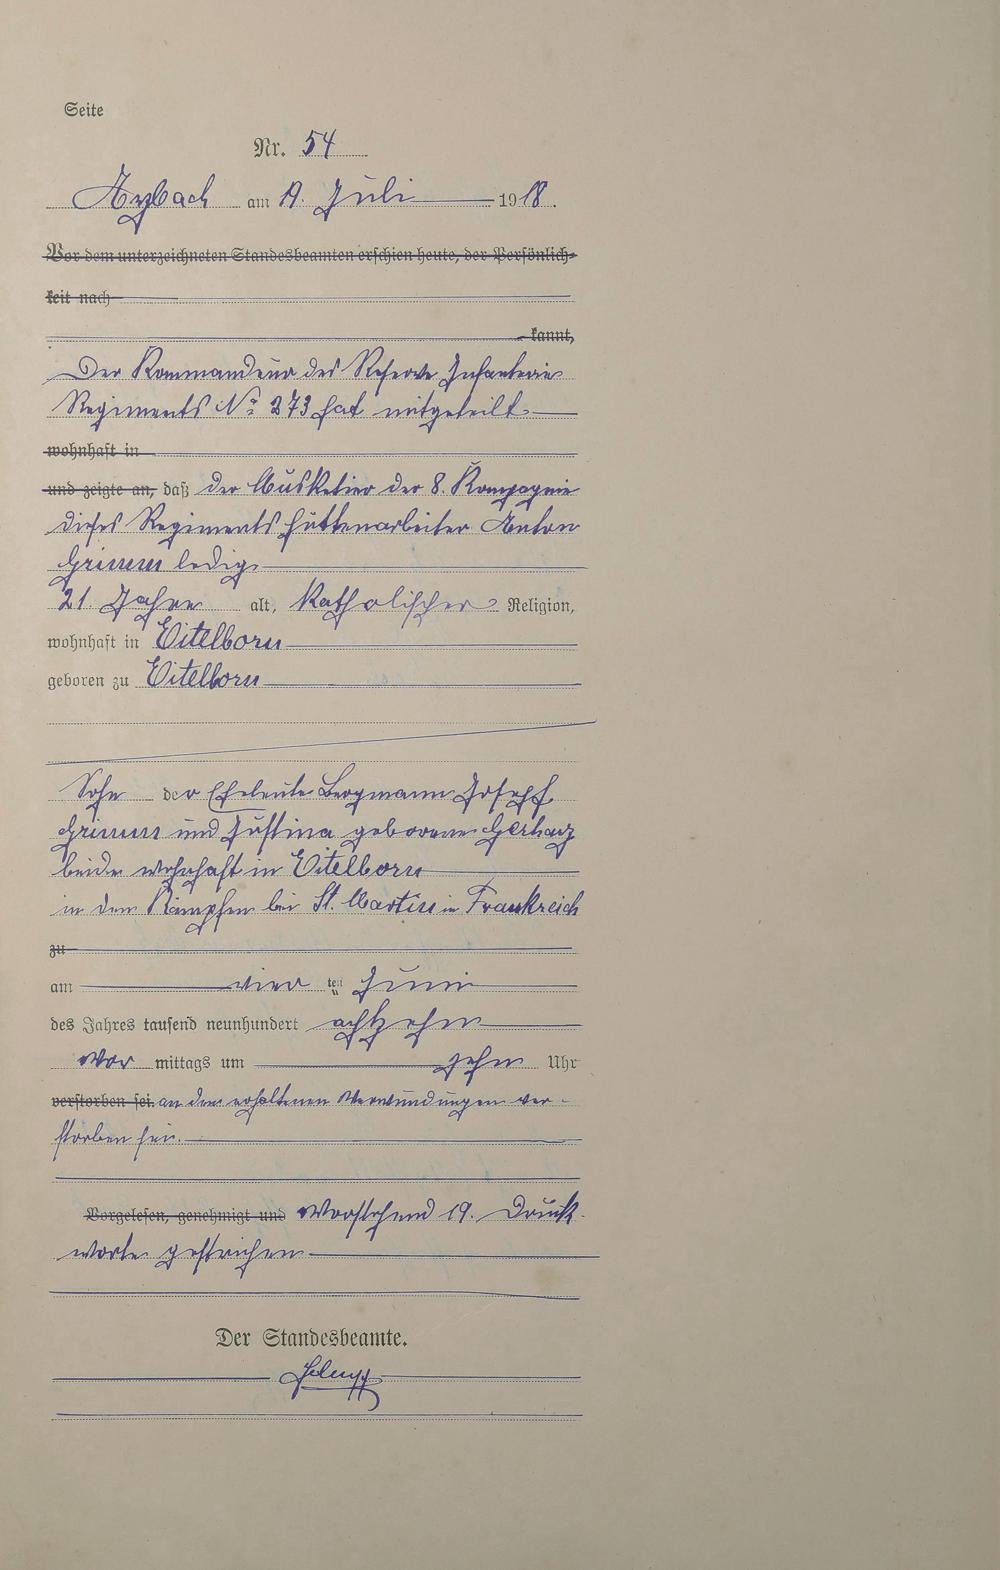 Seite
Nr. 54
Arzbach am 19. Juli 1918.
Vor dem unterzeichneten Standesbeamten erschien heute, der Persönlich-
keit nach
kannt,
Der Kommandeur des Reserve Infanterie
Regiments No 273 hat mitgeteilt
wohnhaft in
und zeigte an, daß der Musketier der 8. Kompagnie
dieses Regiments Hüttenarbeiter Anton
Grimm ledig
21 Jahre alt, katholischer Religion,
wohnhaft in Eitelborn
geboren zu Eitelborn
Sohn der Eheleute Bergmann Joseph
Grimm und Justina geborene Gerharz
beide wohnhaft in Eitelborn
in den Kämpfen bei St. Martin in Frankreich
zu
am vier ten Juni
des Jahres tausend neunhundert achtzehn
Vor mittags um zehn Uhr
verstorben sei. an den erhaltenen Verwundungen ver-
storben sei.
Vorgelesen, genehmigt und Vorstehend 19. Druck-
worte gestrichen
Der Standesbeamte.